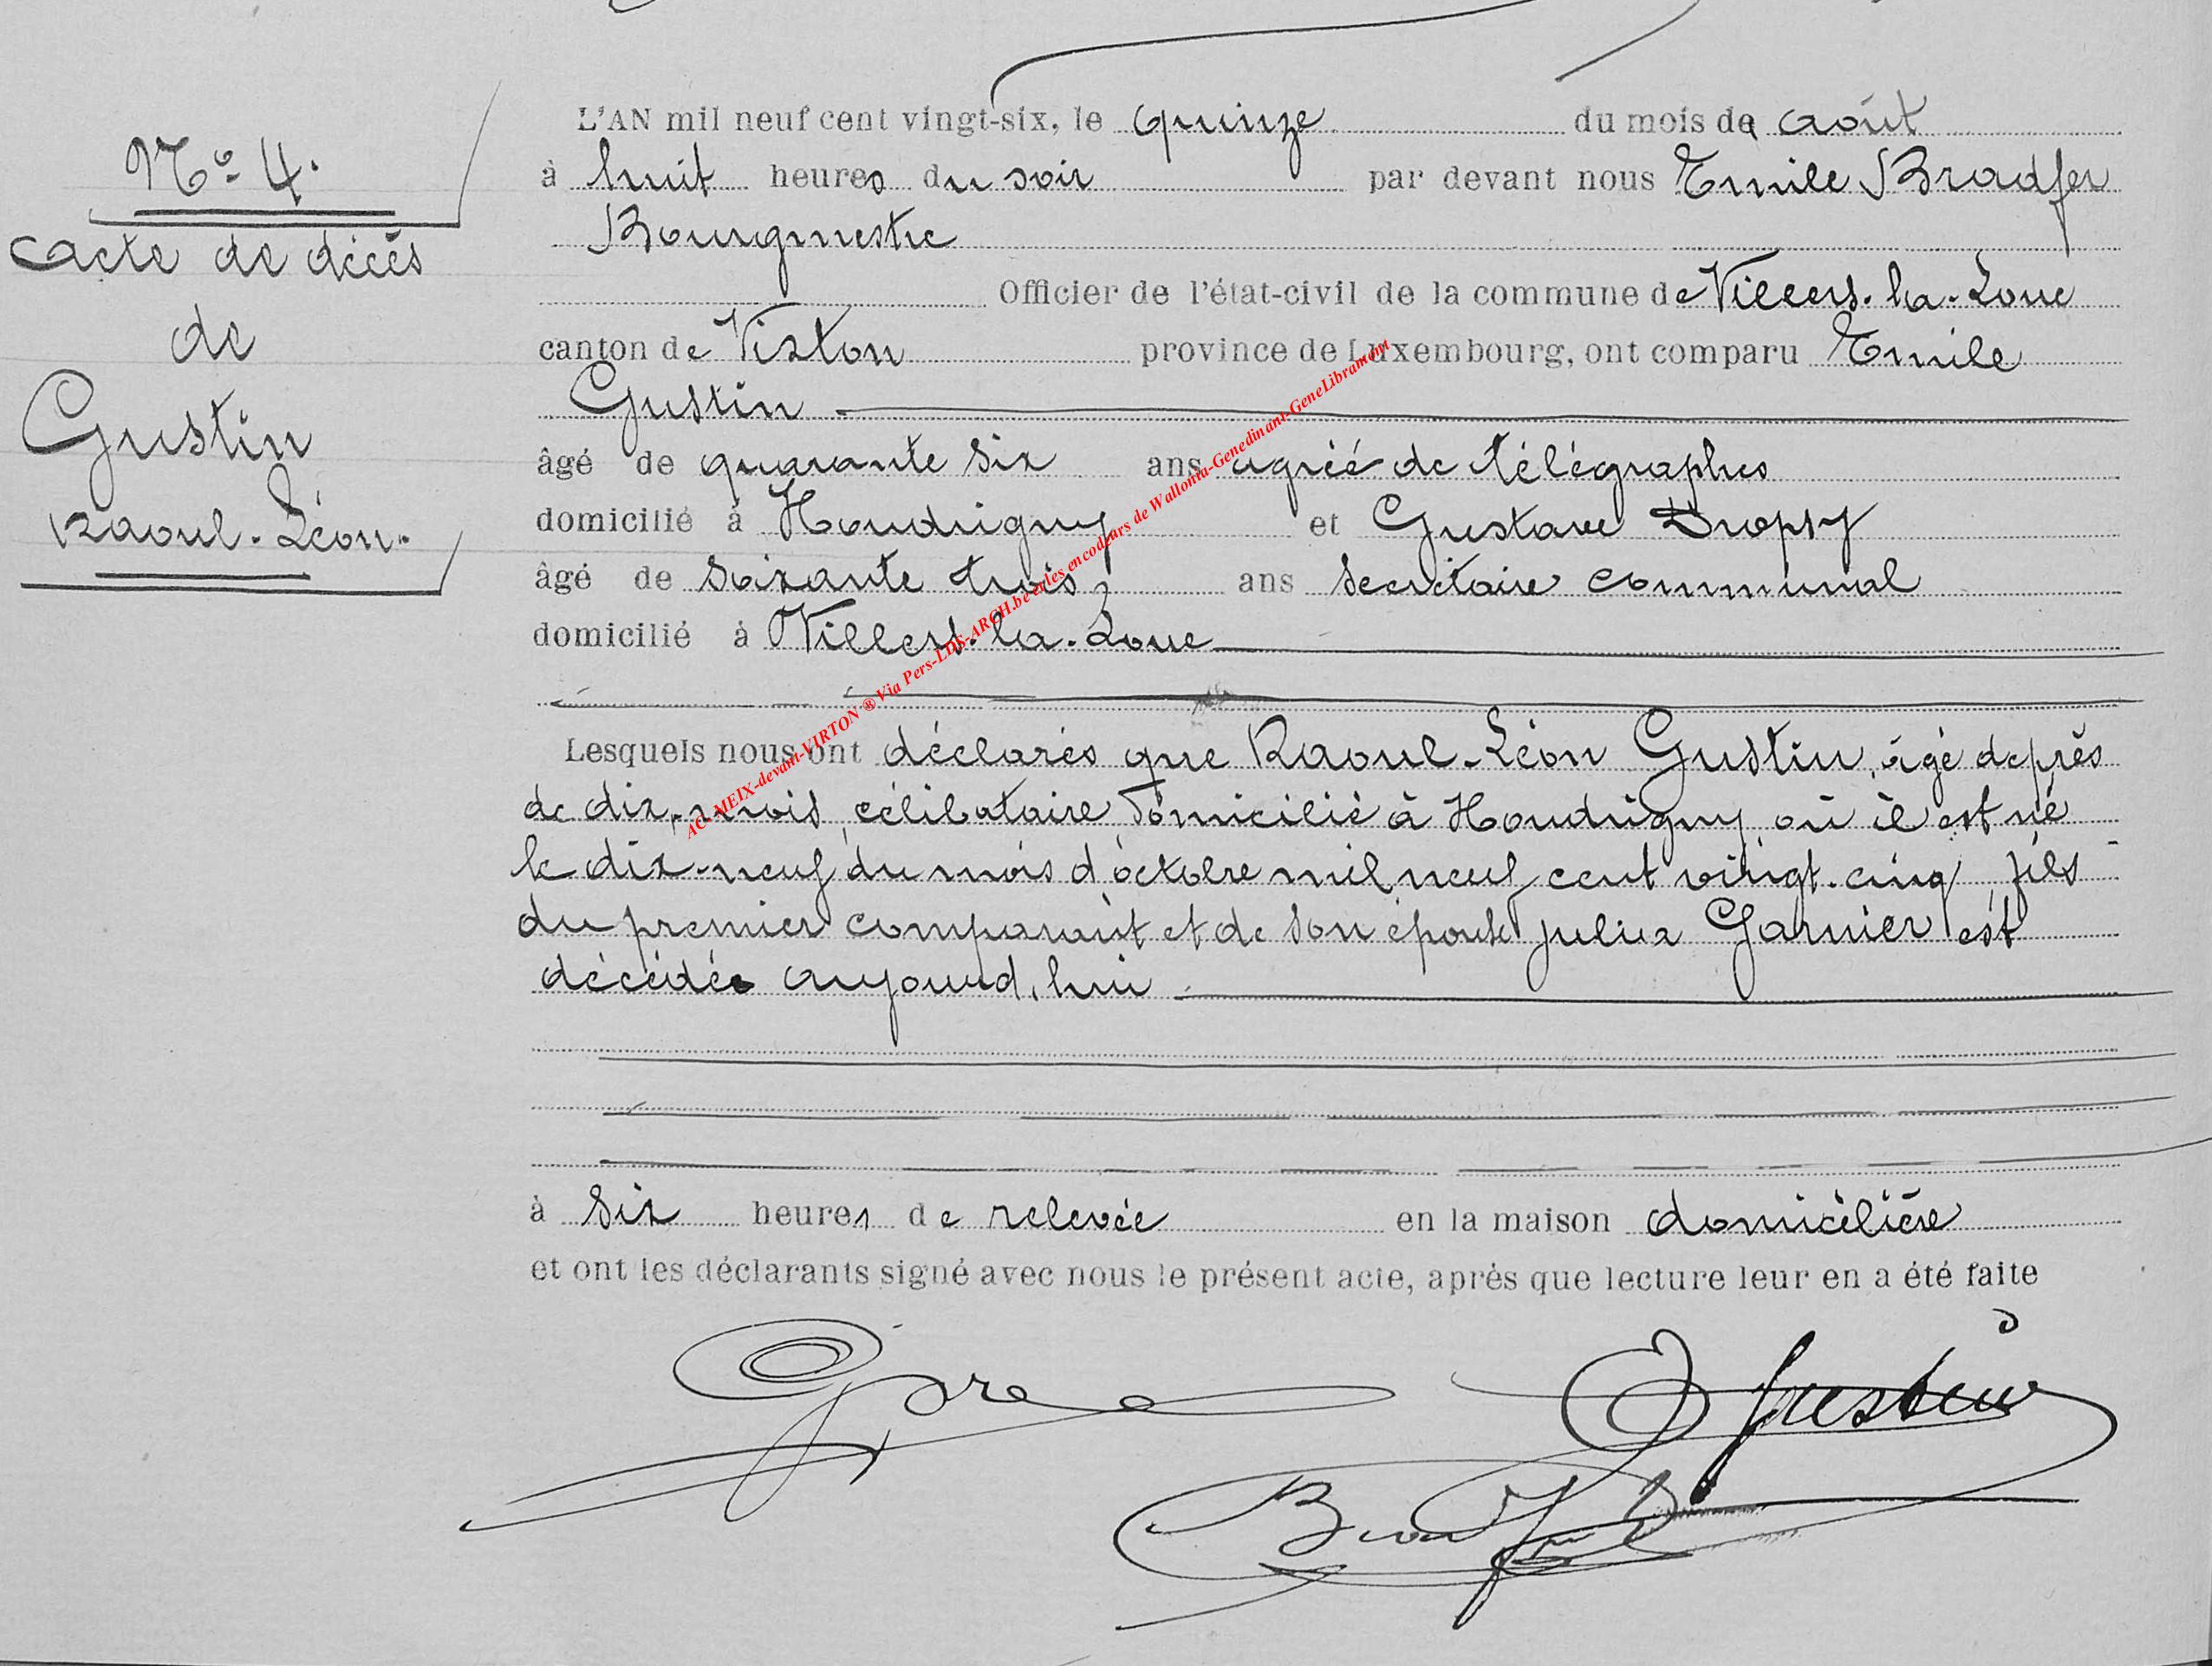 N° 4.
acte de décès
de
Gustin
Raoul-Léon-
L'AN mil neuf cent vingt-six, le quinze du mois de août
à huit heures du soir par devant nous Emile Bradfer
Bourgmestre
Officier de l'état-civil de la commune de Villers-la-Loue
canton de Virton province de Luxembourg, ont comparu Emile
Gustin
âgé de quarante six ans agréé de télégraphes
domicilié à Houdrigny et Gustave Dropsy
âgé de soixante trois ans secrétaire communal
domicilié à Villers-la-Loue
Lesquels nous ont déclarés que Raoul-Léon Gustin, âgé de près
de dix-mois, célibataire, domicilié à Houdrigny où il est né
le dix-neuf du mois d'octobre mil neuf cent vingt-cinq, fils
du premier comparant et de son épouse Garnier est
décédé aujourd'hui
à six heures de relevée en la maison domicilière
et ont les déclarants signé avec nous le présent acte, après que lecture leur en a été faite
Gustin
Bradfer
AC-MEIX-devant-VIRTON ® Via Pers-LDS-ARCH.be et les encodeurs de Wallonia-Genedinant-GeneLibramont